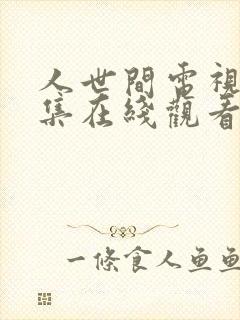 人世間電視
集在綫觀看
一條食人魚魚